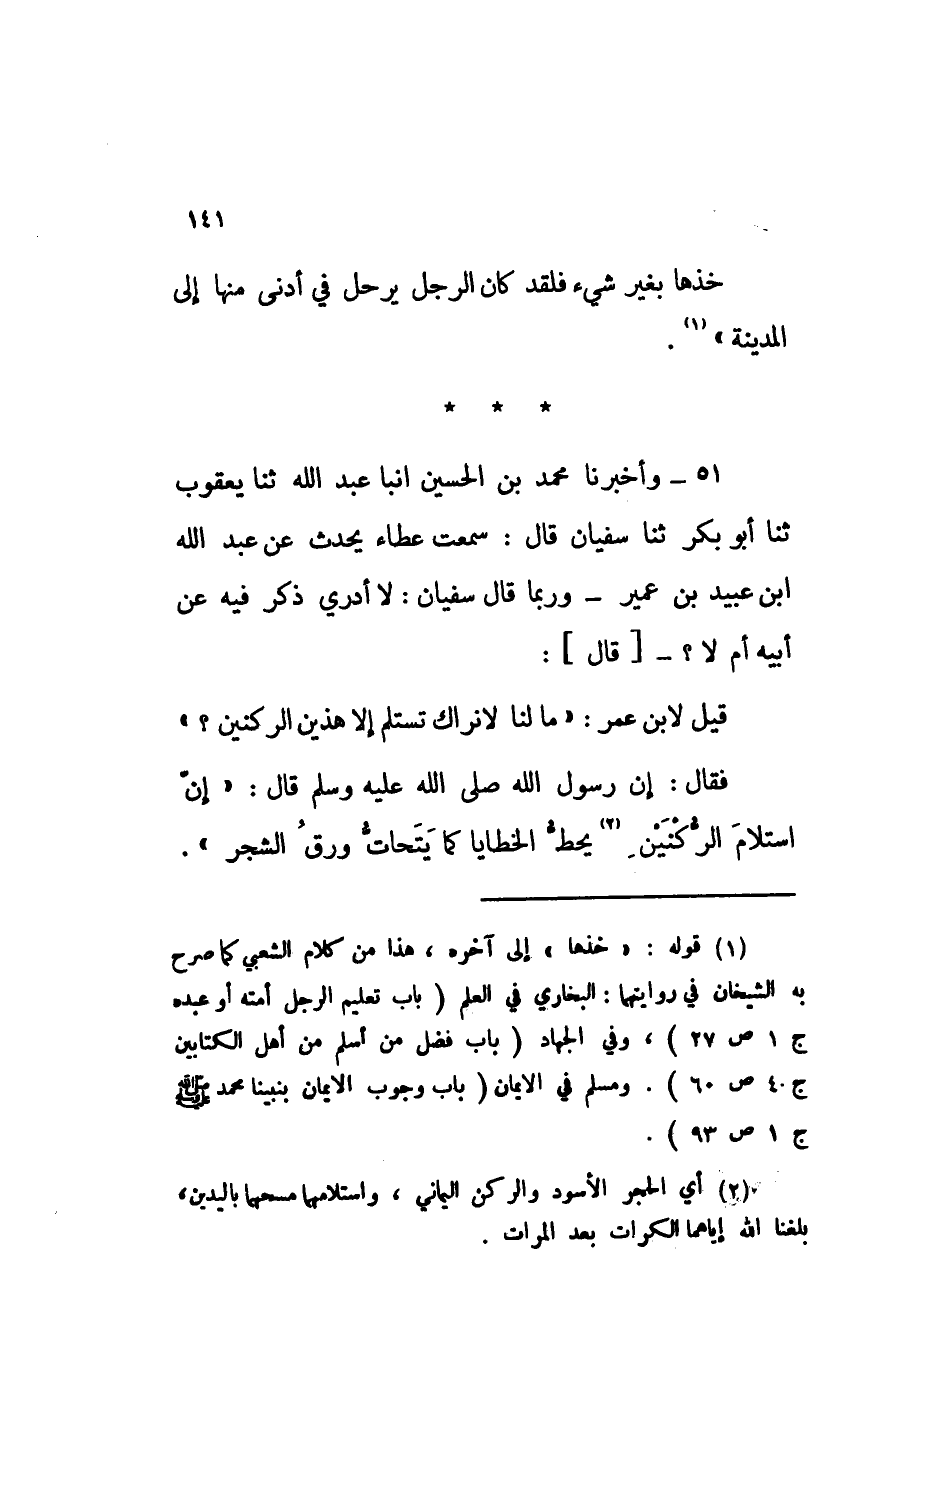 ١٤١
خذها بغير شيء فلقد كان الرجل يرحل في أدنى منها إلى
المدينة » (١) .
* * *
٥١ ــ وأخبرنا محمد بن الحسين انبا عبد الله ثنا يعقوب
ثنا أبو بكر ثنا سفيان قال : سمعت عطاء يحدث عن عبد الله
ابن عبيد بن عمير ــ وربما قال سفيان : لا أدري ذكر فيه عن
أبيه أم لا ؟ ــ [ قال ] :
قيل لابن عمر : « ما لنا لانراك تستلم إلا هذين الركنين ؟ »
فقال : إن رسول الله صلى الله عليه وسلم قال : « إنّ
استلامَ الرُّكْنَيْنِ (٢) يحطُّ الخطايا كما يَتَحاتُّ ورقُ الشجر » .
(١) قوله : « خذها » إلى آخره ، هذا من كلام الشعبي كما صرح
به الشيخان في روايتها : البخاري في العلم ( باب تعليم الرجل أمته أو عبده
ج ١ ص ٢٧ ) ، وفي الجهاد ( باب فضل من أسلم من أهل الكتابين
ج ٤٠ ص ٦٠ ) . ومسلم في الايمان ( باب وجوب الايمان بنبينا محمد ﷺ
ج ١ ص ٩٣ ) .
(٢) أي الحجر الأسود والركن اليماني ، واستلامها مسحها باليدين ،
بلغنا الله إياهما الكرات بعد المرات .